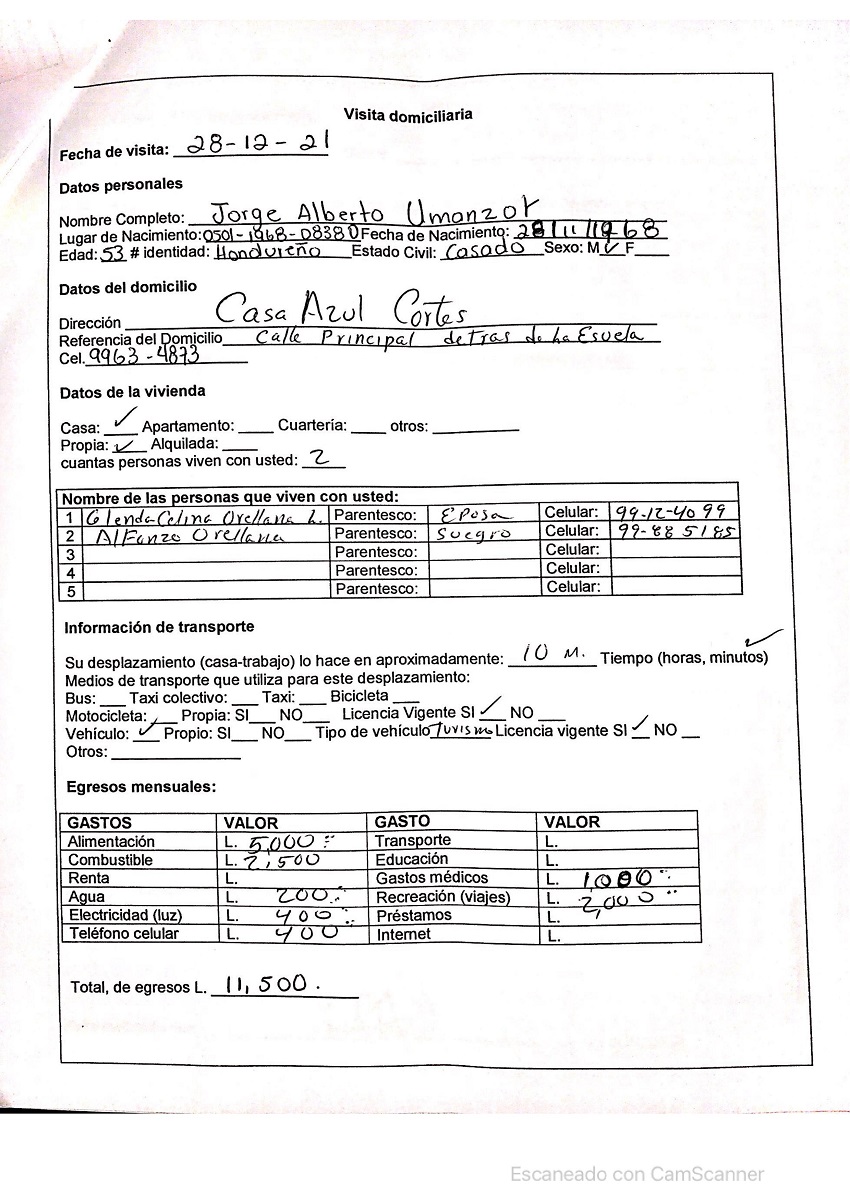 Visita domiciliaria
Fecha de visita: 28-12-21
Datos personales
Nombre Completo: Jorge Alberto Umanzor
Lugar de Nacimiento: 0501-1968-08380 Fecha de Nacimiento: 28/11/1968
Edad: 53 # identidad: Hondureño Estado Civil: Casado Sexo: M ✓ F___
Datos del domicilio
Dirección Casa Azul Cortes
Referencia del Domicilio Calle Principal detras de La Esuela
Cel. 9963-4873
Datos de la vivienda
Casa: ✓ Apartamento: ____ Cuartería: ____ otros: __________
Propia: ✓ Alquilada: ____
cuantas personas viven con usted: 2
Nombre de las personas que viven con usted:
1 Glenda Celina Orellana L. Parentesco: Eposa Celular: 99-12-40 99
2 Alfonzo Orellana Parentesco: Suegro Celular: 99-88 5185
3 Parentesco: Celular:
4 Parentesco: Celular:
5 Parentesco: Celular:
Información de transporte
Su desplazamiento (casa-trabajo) lo hace en aproximadamente: 10 M. Tiempo (horas, minutos) ✓
Medios de transporte que utiliza para este desplazamiento:
Bus: ___ Taxi colectivo: ___ Taxi: ___ Bicicleta ___
Motocicleta: ___ Propia: SI___ NO___ Licencia Vigente SI ✓ NO ___
Vehículo: ✓ Propio: SI___ NO___ Tipo de vehículo Turismo Licencia vigente SI ✓ NO __
Otros: ______________
Egresos mensuales:
GASTOS VALOR GASTO VALOR
Alimentación L. 5,000 Transporte L.
Combustible L. 2,500 Educación L.
Renta L. Gastos médicos L. 1,000
Agua L. 200 Recreación (viajes) L. 2,000
Electricidad (luz) L. 400 Préstamos L.
Teléfono celular L. 400 Internet L.
Total, de egresos L. 11,500.
Escaneado con CamScanner